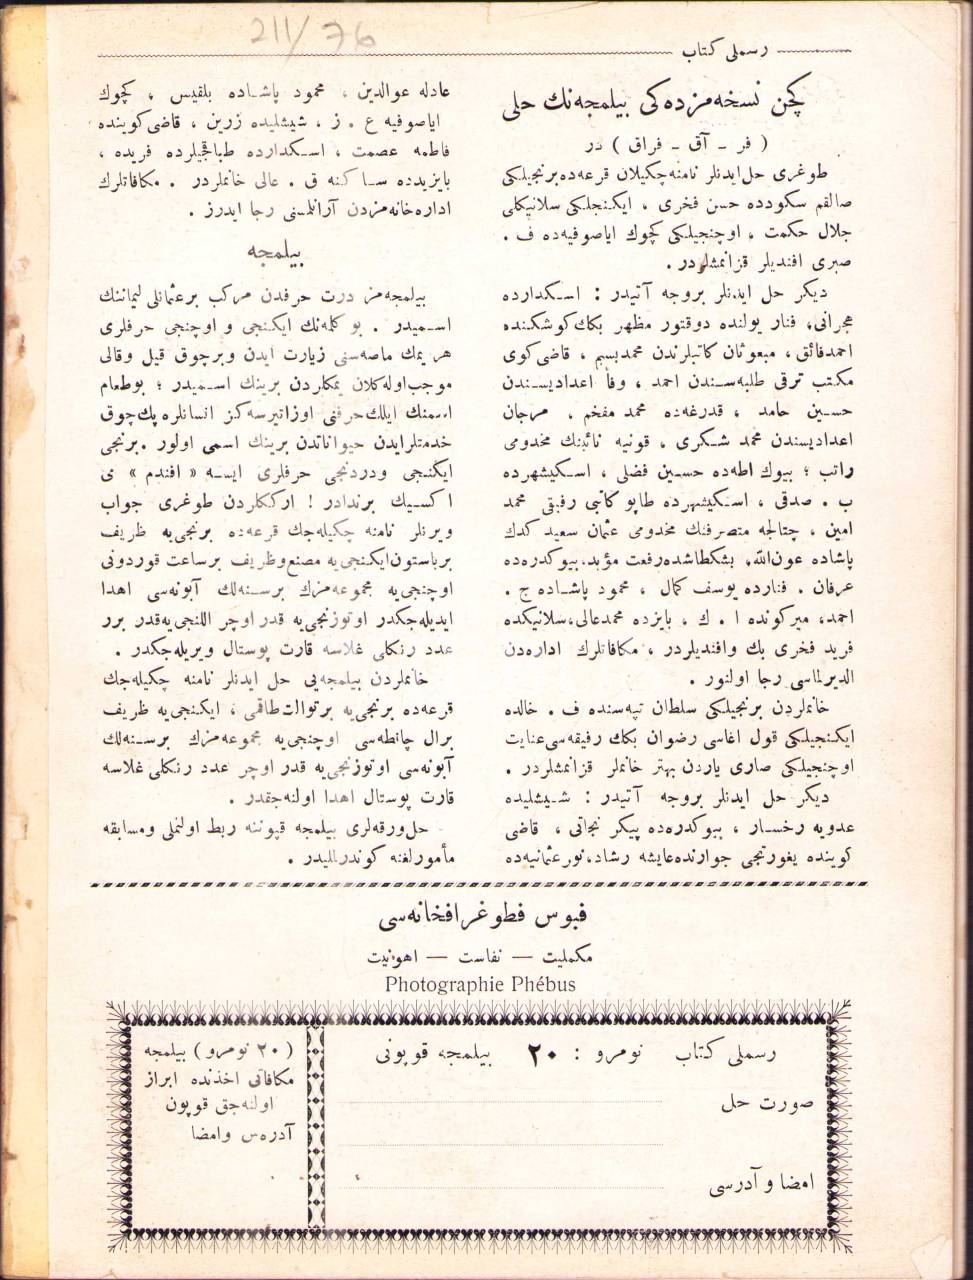 211/76
رسملی كتاب
كچن نسخه‌مزده‌كی بیلمجه‌نك حلی
( فر ـ آق ـ فراق ) در
طوغری حل ایدنلر نامنه چكیلان قرعه‌ده برنجیلكی
صالقم سكودده حسن فخری ، ایكنجلكی سلانیكلی
جلال حكمت ، اوچنجیلكی كچوك ایاصوفیه‌ده ف .
صبری افندیلر قزانمشلردر .
دیكر حل ایدنلر بروجه آتیدر : اسكدارده
هجرانی، فنار یولنده دوقتور مظهر بكك كوشكنده
احمدفائق ، مبعوثان كاتبلرندن محمدبسیم ، قاضی كوی
مكتب ترقی طلبه‌سندن احمد ، وفا اعدادیسندن
حسین حامد ، قدرغه‌ده محمد مفخم ، مرجان
اعدادیسندن محمد شكری ، قونیه نائبنك مخدومی
راتب ؛ بیوك اطه‌ده حسین فضلی ، اسكیشهرده
ب . صدقی ، اسكیشهرده طاپو كاتبی رفیقی محمد
امین ، چتالجه متصرفنك مخدومی عثمان سعید كدك
پاشاده عون‌الله، بشكطاشده رفعت مؤید، بیوكدره‌ده
عرفان . فنارده یوسف كمال ، محمود پاشاده ج .
احمد، میركونده ا . ك ، بایزده محمدعالی، سلانیكده
فرید فخری بك وافندیلردر ، مكافاتلرك اداره‌دن
الدیرلماسی رجا اولنور .
خانملردن برنجیلكی سلطان تپه‌سنده ف . خالده
ایكنجیلكی قول اغاسی رضوان بكك رفیقه‌سی عنایت
اوچنجیلكی صاری یاردن بهتر خانملر قزانمشلردر .
دیكر حل ایدنلر بروجه آتیدر : شیشلیده
عدویه رخسار ، بیوكدره‌ده پیكر نجاتی ، قاضی
كوینده یغورتجی جوارنده عایشه رشاد، نورعثمانیه‌ده
عادله عوالدین ، محمود پاشاده بلقیس ، كچوك
ایاصوفیه ع . ز ، شیشلیده زرین ، قاضی كوینده
فاطمه عصمت ، اسكدارده طباقجیلرده فریده ،
بایزیدده ساكنه ق . عالی خانملردر . مكافاتلرك
اداره‌خانه‌مزدن آرانلمسنی رجا ایدرز .
بیلمجه
بیلمجه‌مز درت حرفدن مركب برعثمانلی لیماننك
اسمیدر . بو كله‌نك ایكنجی و اوچنجی حرفلری
هر یمك ماصه‌سنی زیارت ایدن وبرچوق قیل وقالی
موجب اوله‌كلان یمكلردن برینك اسمیدر ؛ بوطعام
اسمنك ایلك حرفنی اوزاتیرسه‌كز انسانلره پك‌چوق
خدمتلرایدن حیواناتدن برینك اسمی اولور . برنجی
ایكنجی ودردنجی حرفلری ایسه « افندم » ی
اكسیك برندادر ! ارككلردن طوغری جواب
ویرنلر نامنه چكیله‌جك قرعه‌ده برنجی‌یه ظریف
برباستون ایكنجی‌یه مصنع وظریف برساعت قوردونی
اوچنجی‌یه مجموعه‌مزك برسنه‌لك آبونه‌سی اهدا
ایدیله‌جكدر اوتوزنجی‌یه قدر اوچر اللنجی‌یه‌قدر برر
عدد رنكلی غلاسه قارت پوستال ویریله‌جكدر .
خانملردن بیلمجه‌یی حل ایدنلر نامنه چكیله‌جك
قرعه‌ده برنجی‌یه برتوالت‌طاقمی ، ایكنجی‌یه ظریف
برال چانطه‌سی اوچنجی‌یه مجموعه‌مزك برسنه‌لك
آبونه‌سی اوتوزنجی‌یه قدر اوچر عدد رنكلی غلاسه
قارت پوستال اهدا اولنه‌جقدر .
حل‌ورقه‌لری بیلمجه قپوننه ربط اولنملی ومسابقه
مأمورلغنه كوندرلملیدر .
فبوس فطوغرافخانه‌سی
مكملیت — نفاست — اهونیت
Photographie Phébus
رسملی كتاب نومرو : ٢٠ بیلمجه قوپونی
صورت حل
امضا و آدرسی
( ٢٠ نومرو ) بیلمجه
مكافاتی اخذنده ابراز
اولنه‌جق قوپون
آدره‌س وامضا